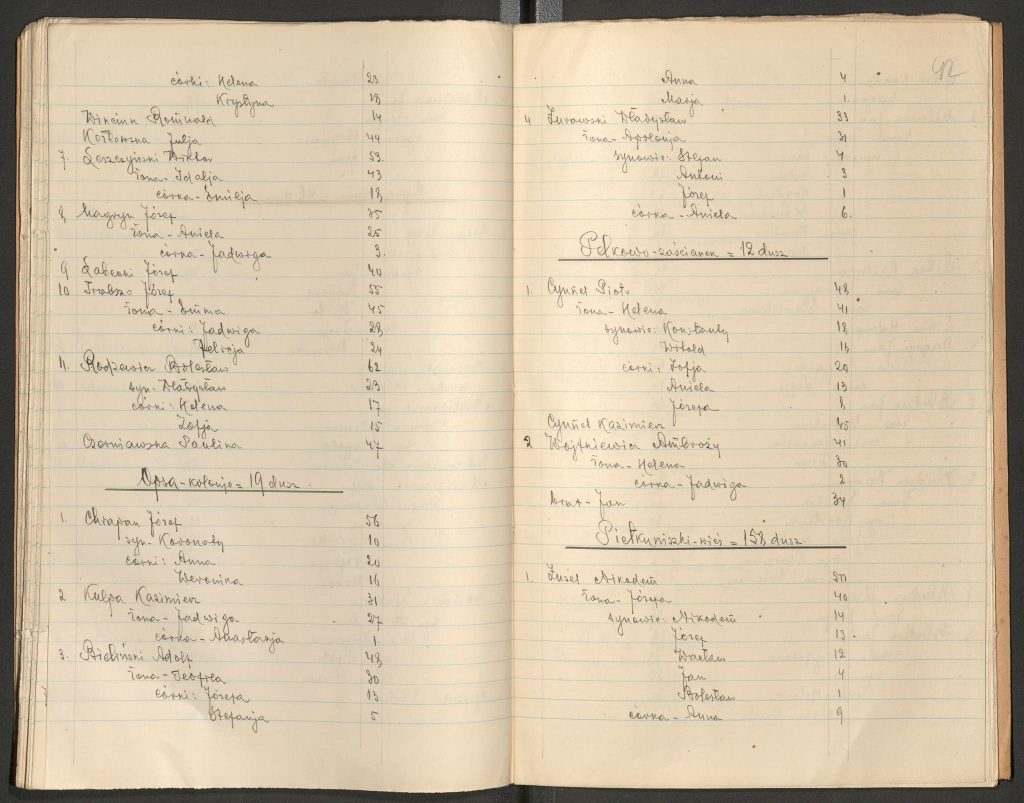 córki: Helena 23
Krystyna 18
Winciun Romuald 14
Kozłowska Julja 44
7. Leszczyński Wiktor 53.
żona - Idalja 43
córka - Emilja 18
8 Magryn Józef 35
żona - Aniela 25
córka - Jadwiga 3.
9 Łabecki Józef 40
10 Trabszo Józef 55
żona - Emma 45
córki: Jadwiga 28
Felicja 24
11. Rodziewicz Bolesław 62
syn - Władysław 23
córki: Helena 17
Zofja 15
Czerniawska Paulina 47
Opsa - kolonje = 19 dusz.
1. Chrapan Józef 56
syn - Koronaty 10
córki: Anna 20
Weronika 16
2 Kulpa Kazimierz 31
żona - Jadwiga 27
córka - Anastazja 1.
3. Bieliński Adolf 48
żona - Teofila 30
córki: Józefa 13
Stefanja 5
42
Anna 4
Marja 1.
4 Żurawski Władysław 33
żona - Apolonja 31
synowie: Stefan 4
Antoni 3
Józef 1
córka - Aniela 6.
Pelkowo - zaścianek = 12 dusz
1. Cynńel Piotr 48
żona - Helena 41
synowie: Konstanty 18
Witold 16
córki: Zofja 20
Aniela 13
Józefa 8
Cynńel Kazimierz 45
2 Wojtkiewicz Ambroży 41
żona - Helena 30
córka - Jadwiga 2
brat - Jan 34
Pietkuniszki - wieś = 158 dusz.
1. Zusel Nikodem 50
żona - Józefa 40
synowie: Nikodem 14
Józef 13
Wacław 12
Jan 4
Bolesław 1
córka - Anna 9